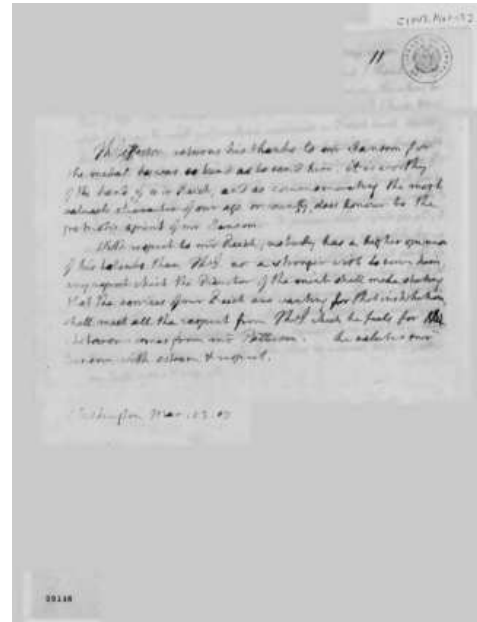 11
Th: Jefferson returns his thanks to mr Ransom for
the medal he was so kind as to send him. it is worthy
of the hand of mr Reich, and as commemorating the most
valued character of our age or country, does honour to the
patriotic spirit of mr Ransom.
With respect to mr Reich, nobody has a higher opinion
of his talents than Th:J. or a stronger wish to
any report which the Director of the mint shall make stating
that the services of mr Reich are wanting for that institution
shall meet all the respect from Th:J. which he feels for
whatever comes from mr Patterson. he salutes mr
Ransom with esteem & respect.
Washington Mar. 23. 07